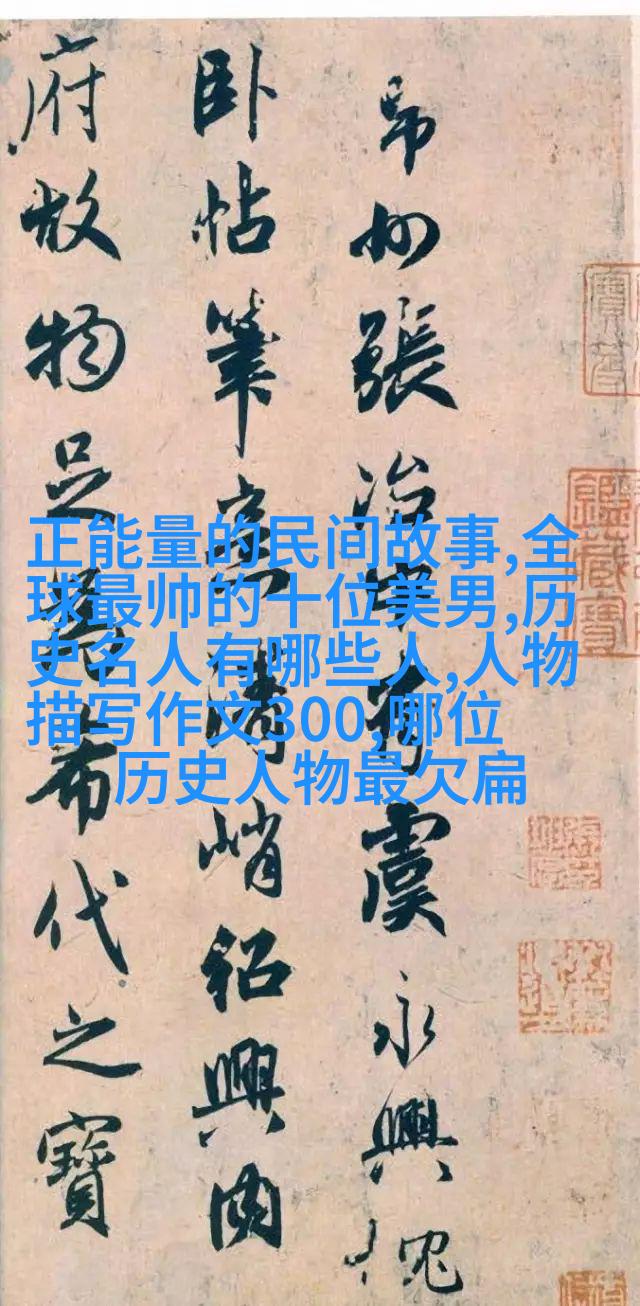 州張冶有虞永興
卧帖筆峭紹興内
府故物足希代之寶
正能量的民间故事,全
球最帅的十位美男,历
史名人有哪些人,人物
描写作文300,哪位
历史人物最欠扁